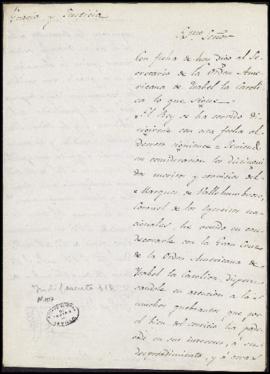 Gracia y Justicia
Exmo. Señor
Con fecha de hoy digo al Se-
cretario de la Orden Ame-
ricana de Isabel la Catoli-
ca lo que sigue
El Rey se ha servido di-
rigirme con esta fecha el
Decreto siguiente = Teniendo
en consideracion los distinguidos
meritos y servicios del
Marques de Vallehumbroso,
Coronel de los Egercitos na-
cionales, he venido en con-
decorarle con la Gran Cruz
de la Orden Americana de
Isabel la Catolica, dispen-
sandole en atencion a los
muchos quebrantos que por
el bien del servicio ha pade-
cido en sus intereses, á su
desprendimiento, y á otras